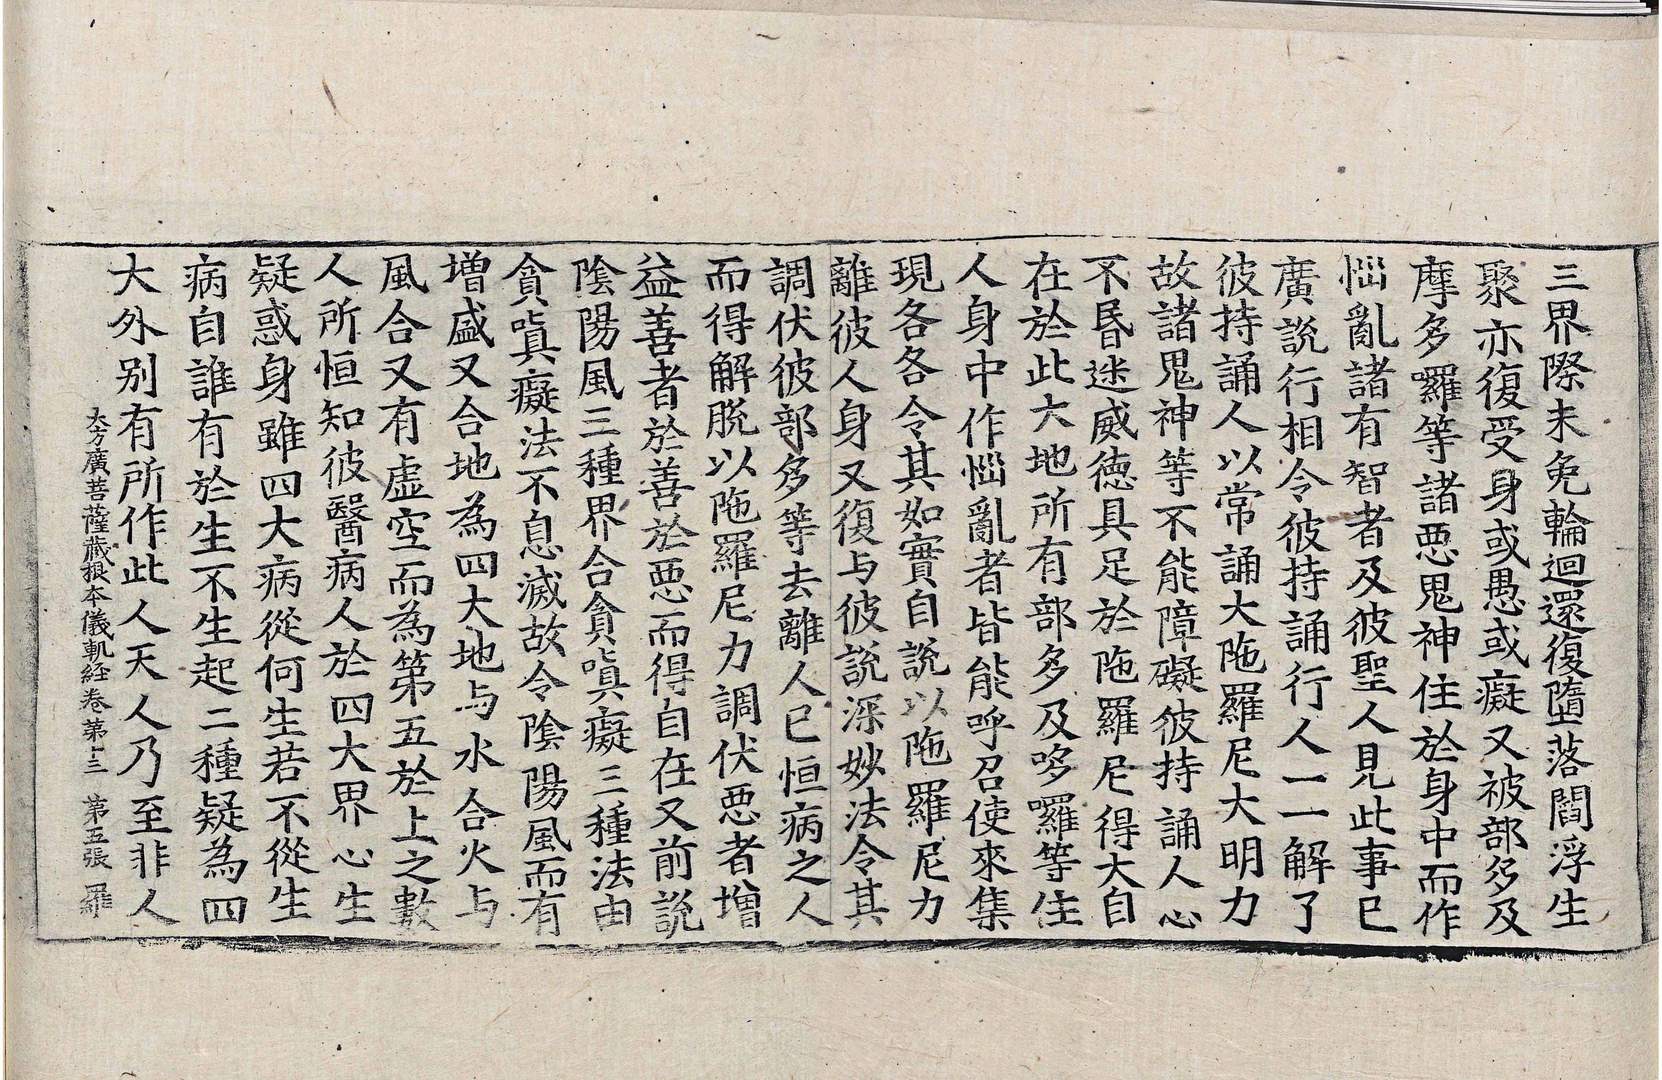 三界際未免輪迴還復墮落閻浮生
聚亦復受身或愚或癡又被部多及
摩多囉等諸惡鬼神住於身中而作
惱亂諸有智者及彼聖人見此事已
廣說行相令彼持誦行人一一解了
彼持誦人以常誦大陁羅尼大明力
故諸鬼神等不能障礙彼持誦人心
不昬迷威德具足於陁羅尼得大自
在於此大地所有部多及哆囉等住
人身中作惱亂者皆能呼召使來集
現各各令其如實自說以陁羅尼力
離彼人身又復与彼說深妙法令其
調伏彼部多等去離人已恒病之人
而得解脫以陁羅尼力調伏惡者增
益善者於善於惡而得自在又前說
陰陽風三種界合貪嗔癡三種法由
貪嗔癡法不息滅故令陰陽風而有
增盛又合地為四大地与水合火与
風合又有虛空而為第五於上之數
人所恒知彼醫病人於四大界心生
疑惑身雖四大病從何生若不從生
病自誰有於生不生起二種疑為四
大外別有所作此人天人乃至非人
大方廣菩薩蔵根本儀軌経卷第十三 第五張 羅